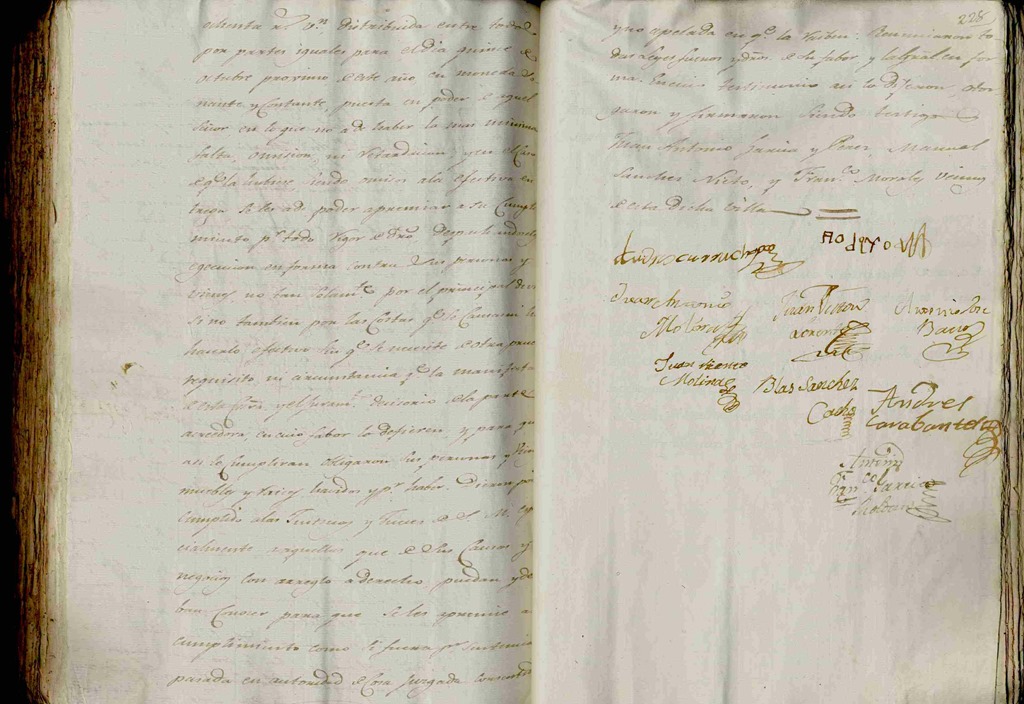 ochenta rs. vn. distribuida entre todos
por partes iguales para el dia quince de
octubre proximo de este año en moneda so
nante y contante, puesta en poder de aquel
Señor en lo que no a de haber la mas minima
falta, omision, ni retardacion y en el caso
de qe. la hubiese siendo omisos ala efectiva en
trega se les ad poder apremiar a su cumpli
miento pr. todo rigor de dro. despachandoseles
egecucion en forma contra sus personas y
vienes no tan solamte. por el principal deve
si no tambien por las costas qe. se causaren
hacerlo efectivo sin qe. se necesite de otra prueva
requisito, ni circunstancia qe. la manifiesta
de esta Escra. y el juramto. decisorio de la parte
acreedora, en cuio fabor lo defieren, y para que
asi lo cumpliran obligaron sus personas y vienes
muebles y raices havidos y pr. haber. Dieron poder
cumplido alas Justicias y Jueces de S. M. espe
cialmente aquellos que de sus causas y
negocios con arreglo a derecho puedan y de
ban conocer para que se les apremie a su
cumplimiento como si fuera pr. sentencia
pasada en autoridad de cosa juzgada consentida
228
y no apelada en qe. la reciben: Renunciaron to
das leyes fueros y dros. de su fabor y la gral. en for
ma. En cuio testimonio asi lo dijeron, otor
garon y firmaron siendo testigos
Juan Antonio Garcia y Perez, Manuel
Sanchez Nieto, y Franco. Morales vecinos
de esta dicha villa
Juan Antonio
Molina
Juan Franco
Molina
Blas Sanchez
Andres
Carabantes
Ante mi
Franco. Garcia